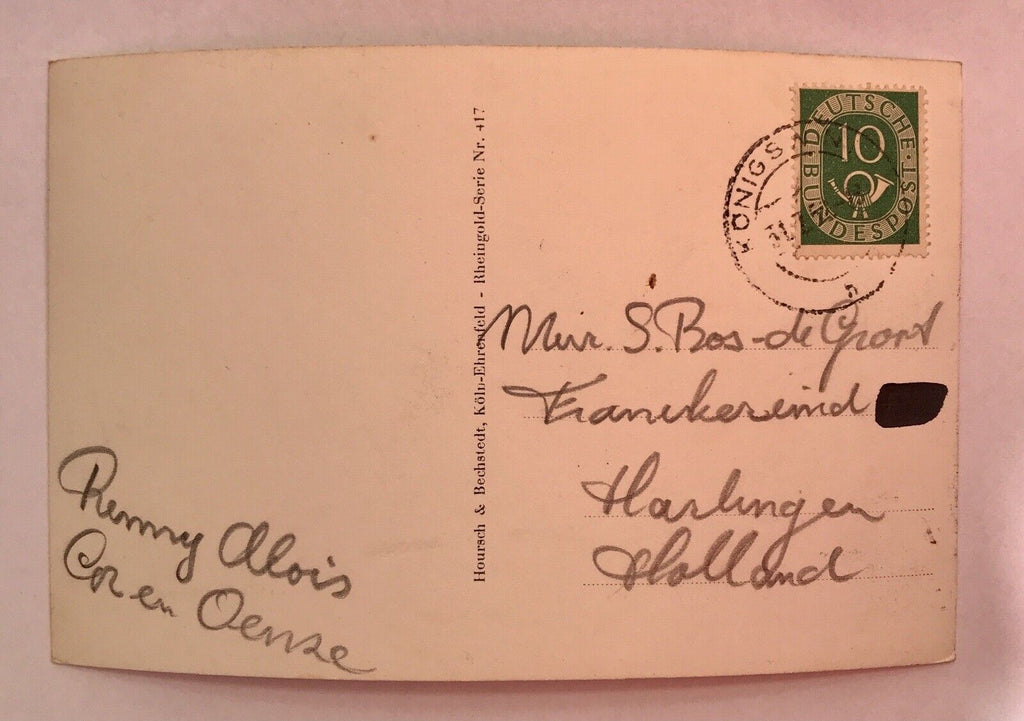 DEUTSCHE BUNDESPOST
10
KÖNIGS
Hoursch & Bechstedt, Köln-Ehrenfeld - Rheingold-Serie Nr. 417
Mevr. S. Bos-de Groot
Franekereind
Harlingen
Holland
Remmy Alois
Cor en Oense